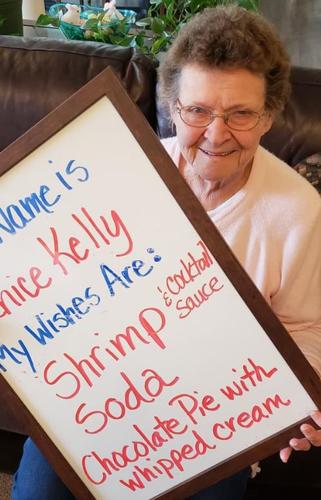 Name is
nice Kelly
My Wishes Are:
Shrimp & cocktail sauce
Soda
Chocolate Pie with
whipped cream